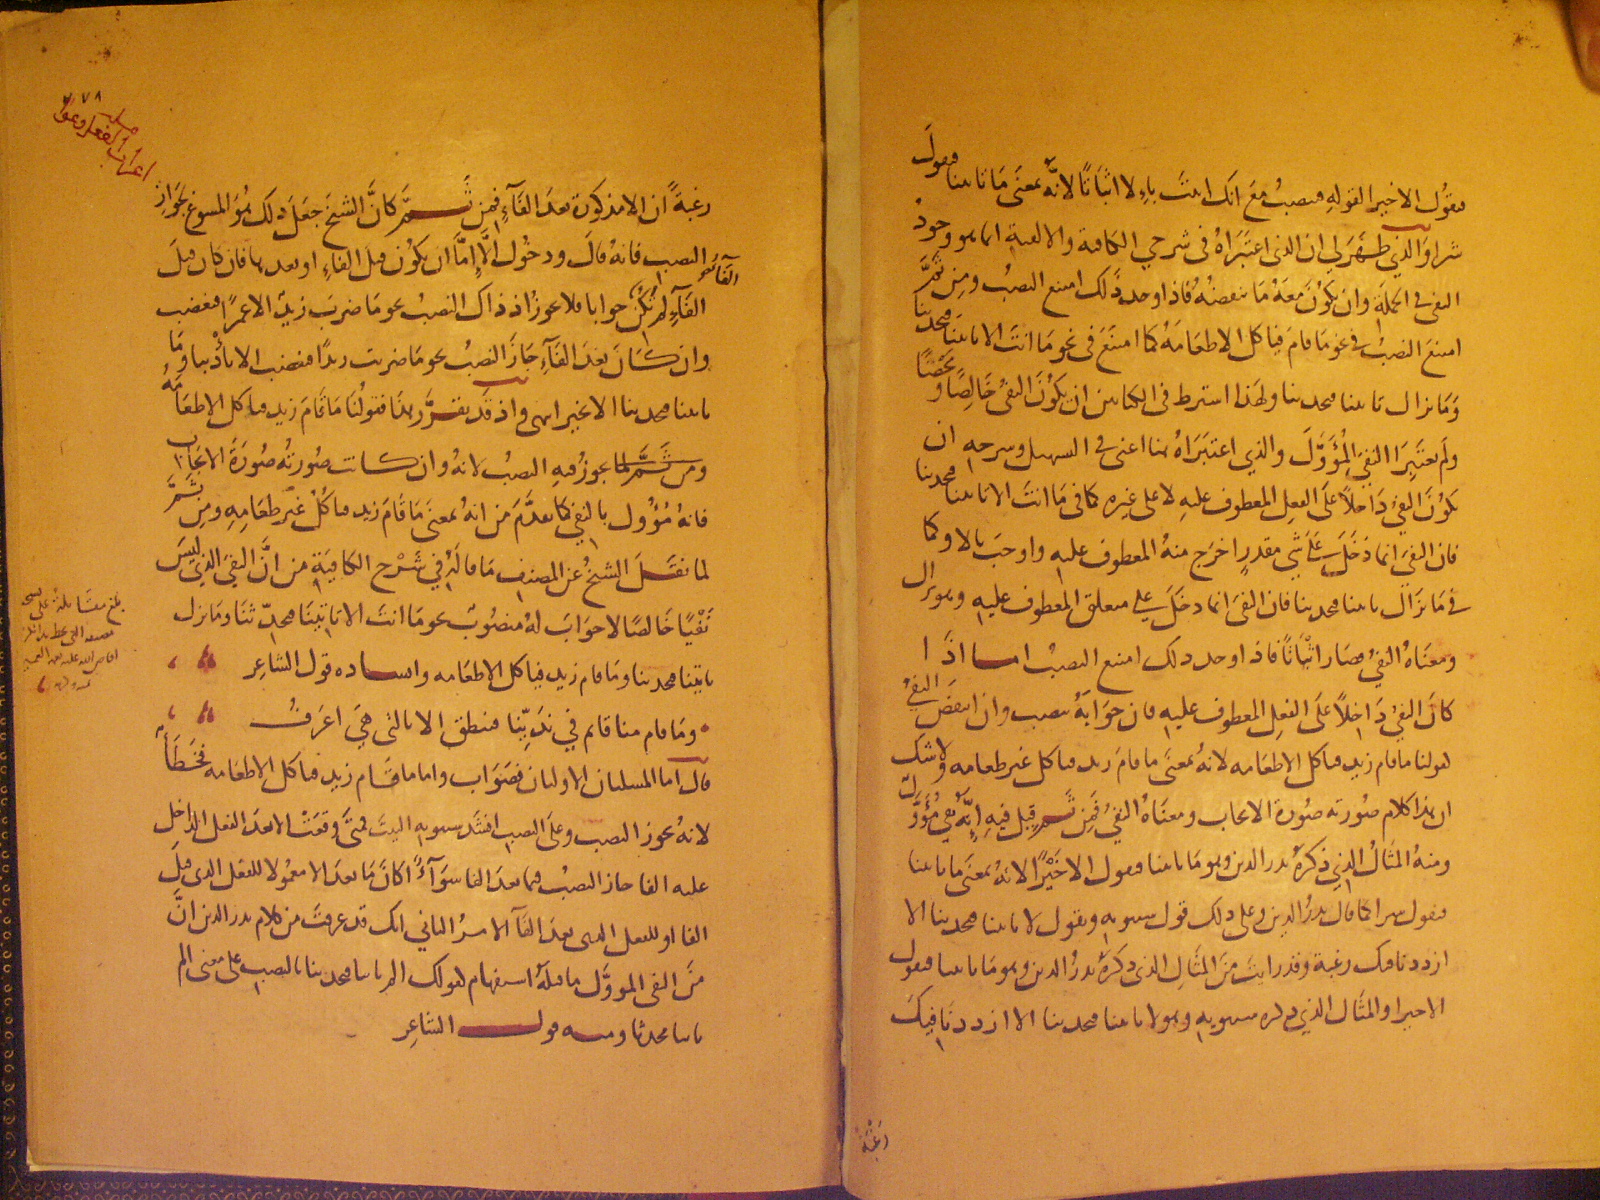 فتقول الا خيرا لقوله فتنصب مع انك اتيت بالا اثباتا لانه بمعنى ما تاتينا فتقول
شرا والذي ظهر لي ان الذي اعتبراه في شرحي الكافية والالفية انما هو وجود
النفي في الجملة وان يكون معه ما ينقضه فاذا وجد ذلك امتنع النصب ومن ثم
امتنع النصب في نحو ما قام فياكل الا طعامه كما امتنع في نحو ما انت الا تاتينا فتحدثنا
وما تزال تاتينا فتحدثنا ولهذا اشترط في الكتابين ان يكون النفي خالصا او محضا
ولم يعتبرا النفي المؤول والذي اعتبراه هنا اعني في التسهيل وشرحه ان
يكون النفي داخلا على الفعل المعطوف عليه لا على غيره كما في ما انت الا تاتينا فتحدثنا
فان النفي انما دخل على شي مقدر اخرج منه المعطوف عليه واوجب بالا وكما
في ما تزال تاتينا فتحدثنا فان النفي انما دخل على متعلق المعطوف عليه وهو تزال
ومعناه النفي فصار اثباتا فاذا وجد ذلك امتنع النصب اما اذا
كان النفي داخلا على الفعل المعطوف عليه فان جوابه ينصب وان انتقض النفي
كقولنا ما قام زيد فياكل الا طعامه لانه بمعنى ما قام زيد فياكل غير طعامه ولا شك
ان هذا كلام صورته صورة الايجاب ومعناه النفي فمن ثم قيل فيه انه نفي مؤول
ومنه المثال الذي ذكره بدر الدين وهو ما تاتينا فتقول الا خيرا لانه بمعنى ما تاتينا
فتقول شرا كما قال بدر الدين وعلى ذلك قول سيبويه وتقول لا تاتينا فتحدثنا الا
ازددنا فيك رغبة وقد رايت من المثال الذي ذكره بدر الدين وهو ما تاتينا فتقول
الا خيرا والمثال الذي ذكره سيبويه وهو لا تاتينا فتحدثنا الا ازددنا فيك
رغبة
٧٨
اعراب الفعل وعوامله
رغبة ان الا مذكورة بعد الفآء فمن ثم كان الشيخ جعل ذلك هو المسوغ لجواز
النصب فانه قال ودخول الا اما ان يكون قبل الفاء او بعدها فان كان قبل
الفآء لم تكن جوابا فلا يجوز اذ ذاك النصب نحو ما ضرب زيد الا عمرا فيغضب
وان كان بعد الفآء جاز النصب نحو ما ضربت زيدا فيغضب الا تأديبا وما
تاتينا فتحدثنا الا بخير انتهى واذ قد تقرر هذا فقولنا ما قام زيد فياكل الا طعامه
ومن ثم لما يجوز فيه النصب لانه وان كانت صورته صورة الايجاب
فانه مؤول بالنفي كما تقدم من انه بمعنى ما قام زيد فياكل غير طعامه ومن ثم
لما نقل الشيخ عن المصنف ما قاله في شرح الكافية من ان النفي الذي ليس
نفيا خالصا لا جواب له منصوب نحو ما انت الا تاتينا فتحدثنا وما تزال
تاتينا فتحدثنا وما قام زيد فياكل الا طعامه وانشاده قول الشاعر
وما قام منا قائم في ندينا فينطق الا بالتي هي اعرف
قال اما المسلتان الاوليان فصواب واما ما قام زيد فياكل الا طعامه فخطأ
لانه يجوز النصب وعلى النصب انشد سيبويه البيت فمتى وقعت الا بعد الفعل الداخل
عليه الفا جاز النصب فيما بعد الفا سوآء اكان ما بعد الا معمولا للفعل الذي قبل
الفا او للفعل الذي بعد الفآ الامر الثاني انك قد عرفت من كلام بدر الدين ان
من النفي المؤول ما قبله استفهام كقولك الم تاتنا فتحدثنا بالنصب على معنى الم
تاتنا محدثا ومنه قول الشاعر